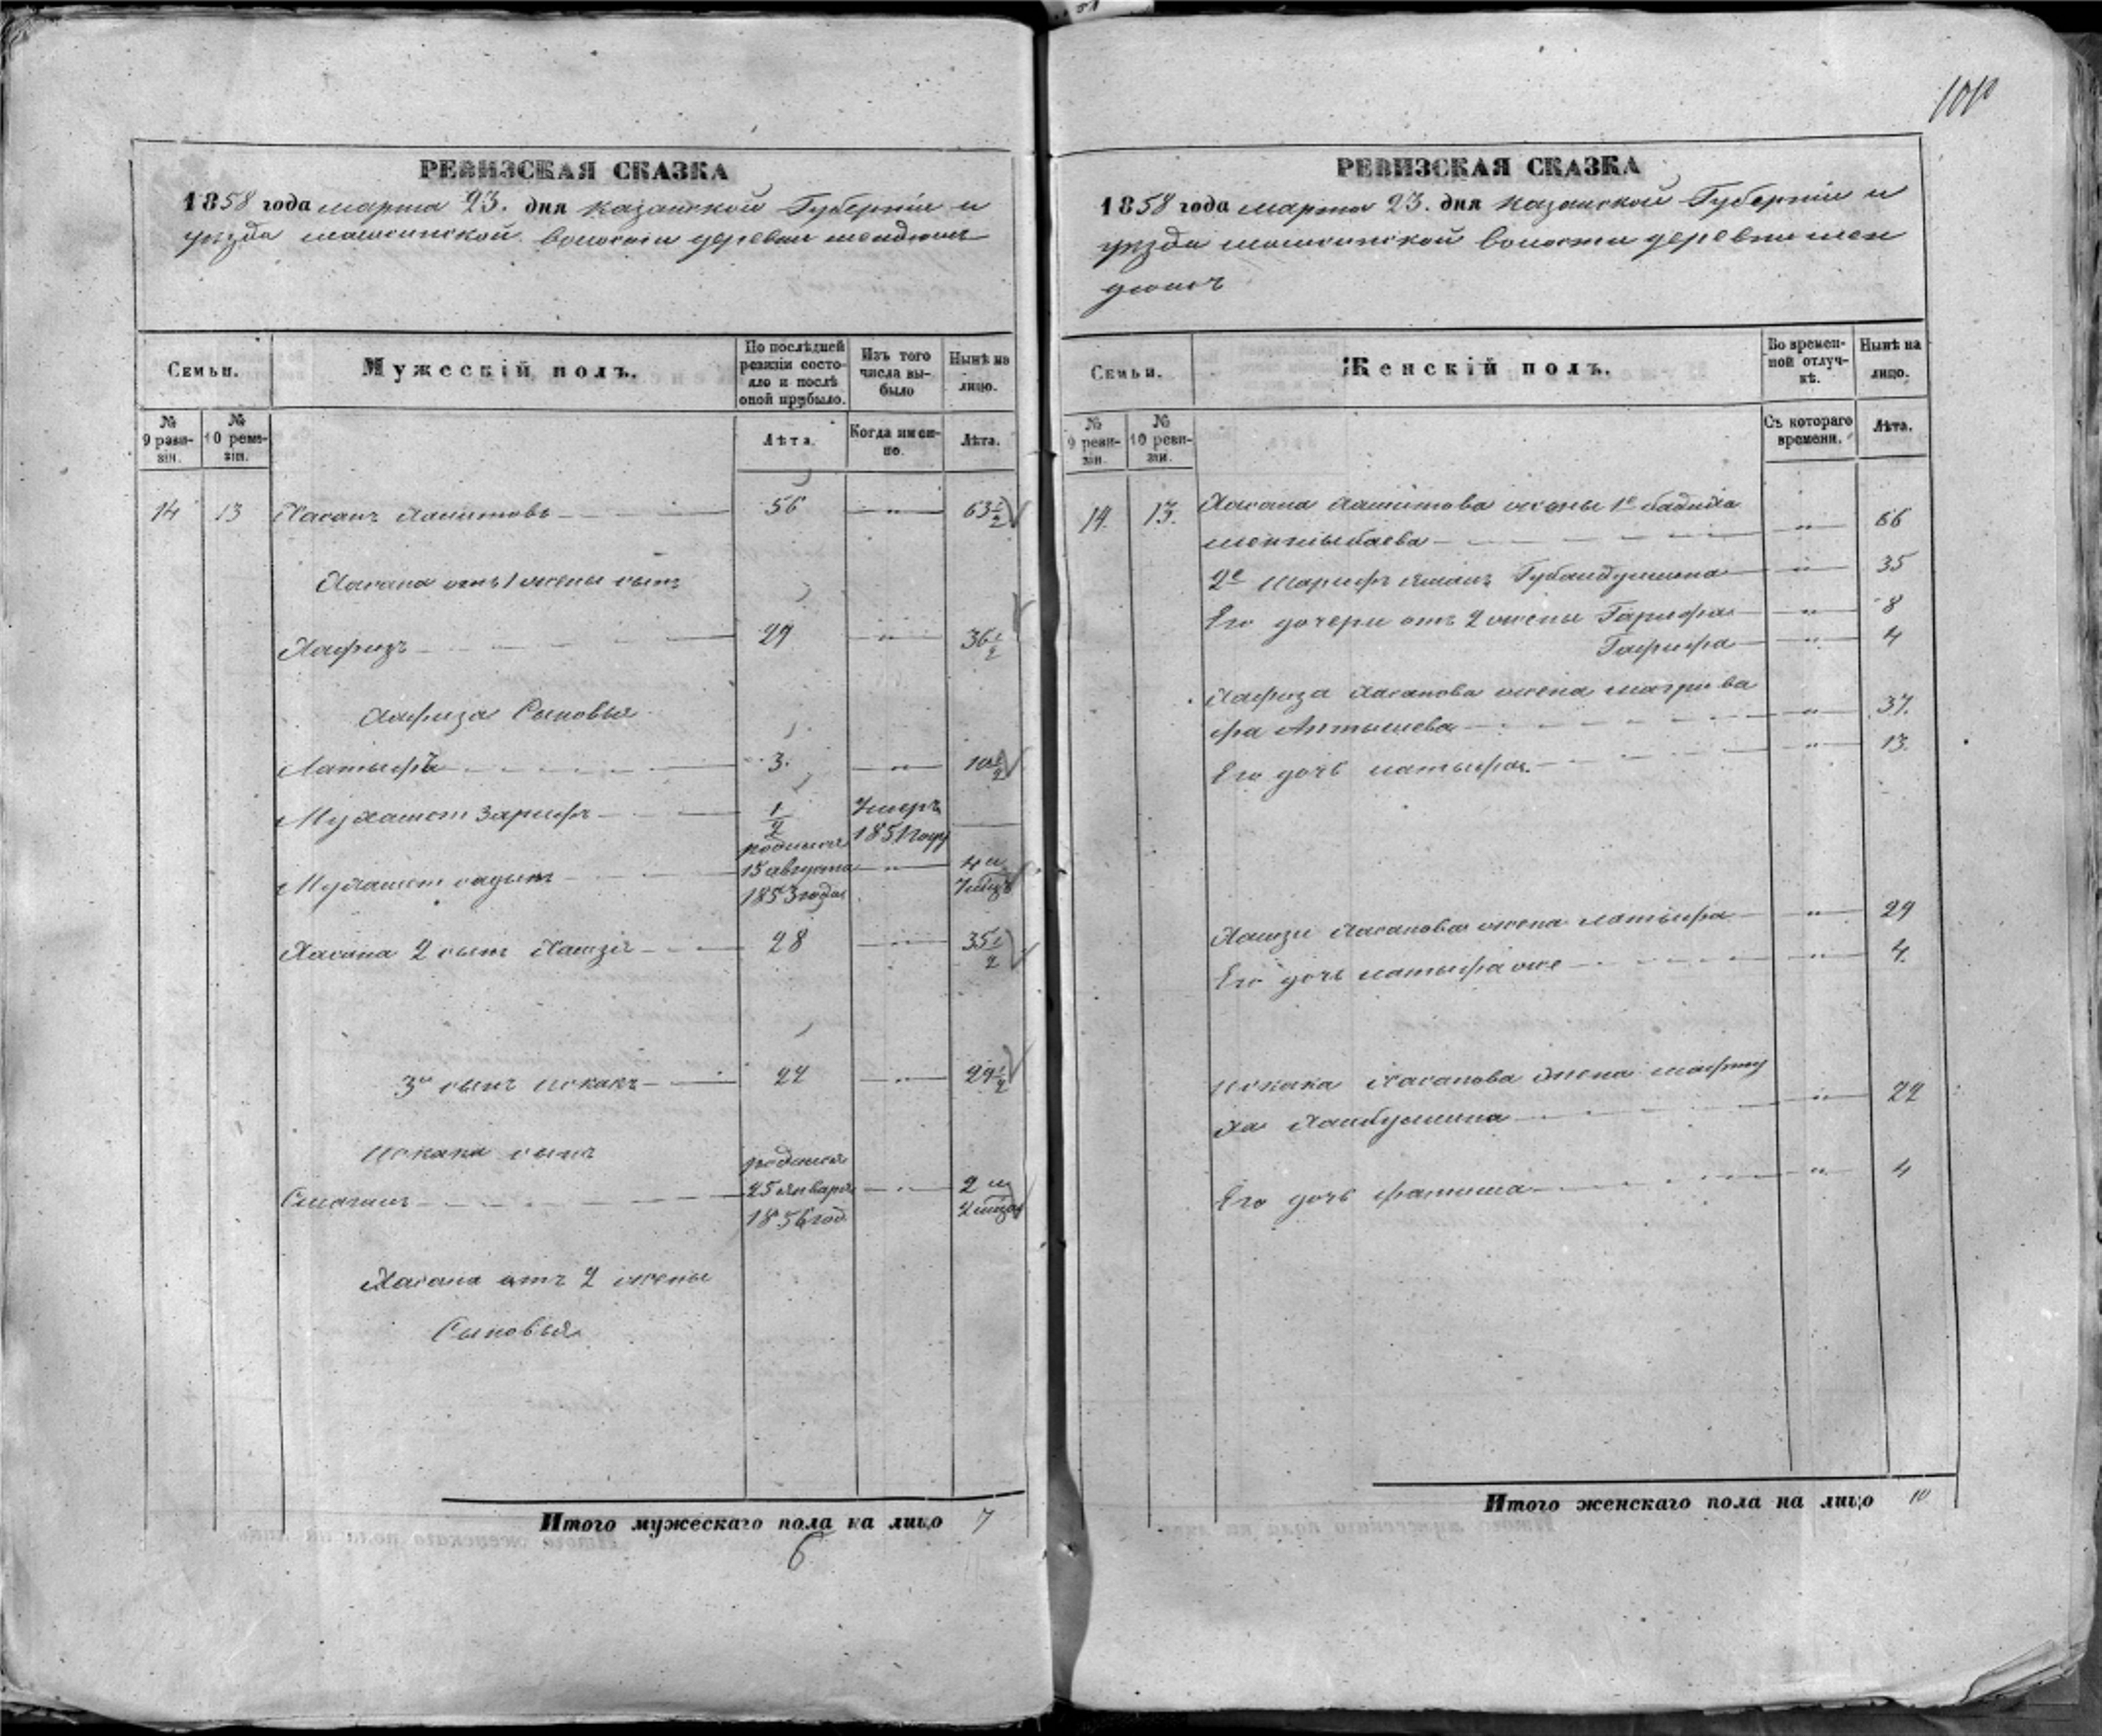 РЕВИЗСКАЯ СКАЗКА
1858 года марта 23. дня казанской Губерніи и
уѣзда волости деревни мендюшъ
Семьи.
Мужескій полъ.
По послѣдней ревизіи состояло и послѣ оной прибыло.
Изъ того числа выбыло
Нынѣ на лицо.
№ 9 ревизіи.
№ 10 ревизіи.
Лѣта.
Когда именно.
Лѣта.
14 13 Хасанъ Хамитовъ 56 — " — 63 1/2
Хасана отъ 1 жены сынъ
Хафизъ 29 — " — 36 1/2
Хафиза Сыновья
Латыфъ 3. — " — 10 1/2
Мухамет Зарифъ 1/2 Умеръ 1851 году
Мухамет садыкъ родился 15 августа 1853 года — " — 4 и 7 мѣцъ
Хасана 2 сынъ Хамзя 28 — " — 35 1/2
3й сынъ Исхакъ 22 — " — 29 1/2
Исхака сынъ
Смагилъ родился 25 января 1856 год. — " — 2 и 2 мѣца
Хасана отъ 2 жены
Сыновья
Итого мужескаго пола на лицо 7
6
РЕВИЗСКАЯ СКАЗКА
1858 года марта 23. дня казанской Губерніи и
уѣзда волости деревни мен
дюшъ
Семьи.
Женскій полъ.
Во временной отлучкѣ.
Нынѣ на лицо.
№ 9 ревизіи.
№ 10 ревизіи.
Съ котораго времени.
Лѣта.
14. 13. Хасана Хамитова жены 1е бадиха
— " — 66
2е Шарифъ Губайдуллина — " — 35
Его дочери отъ 2 жены Гарифа — " — 8
Гафифа — " — 4
Хафиза Хасанова жена магрива
фа — " — 37.
Его дочь латыфа. — " — 13.
Хамзи Хасанова жена латыфа — " — 29
Его дочь латыфа же — " — 4.
Исхака Хасанова жена
ха Хайбуллина — " — 22
Его дочь фатима — " — 4
Итого женскаго пола на лицо 10